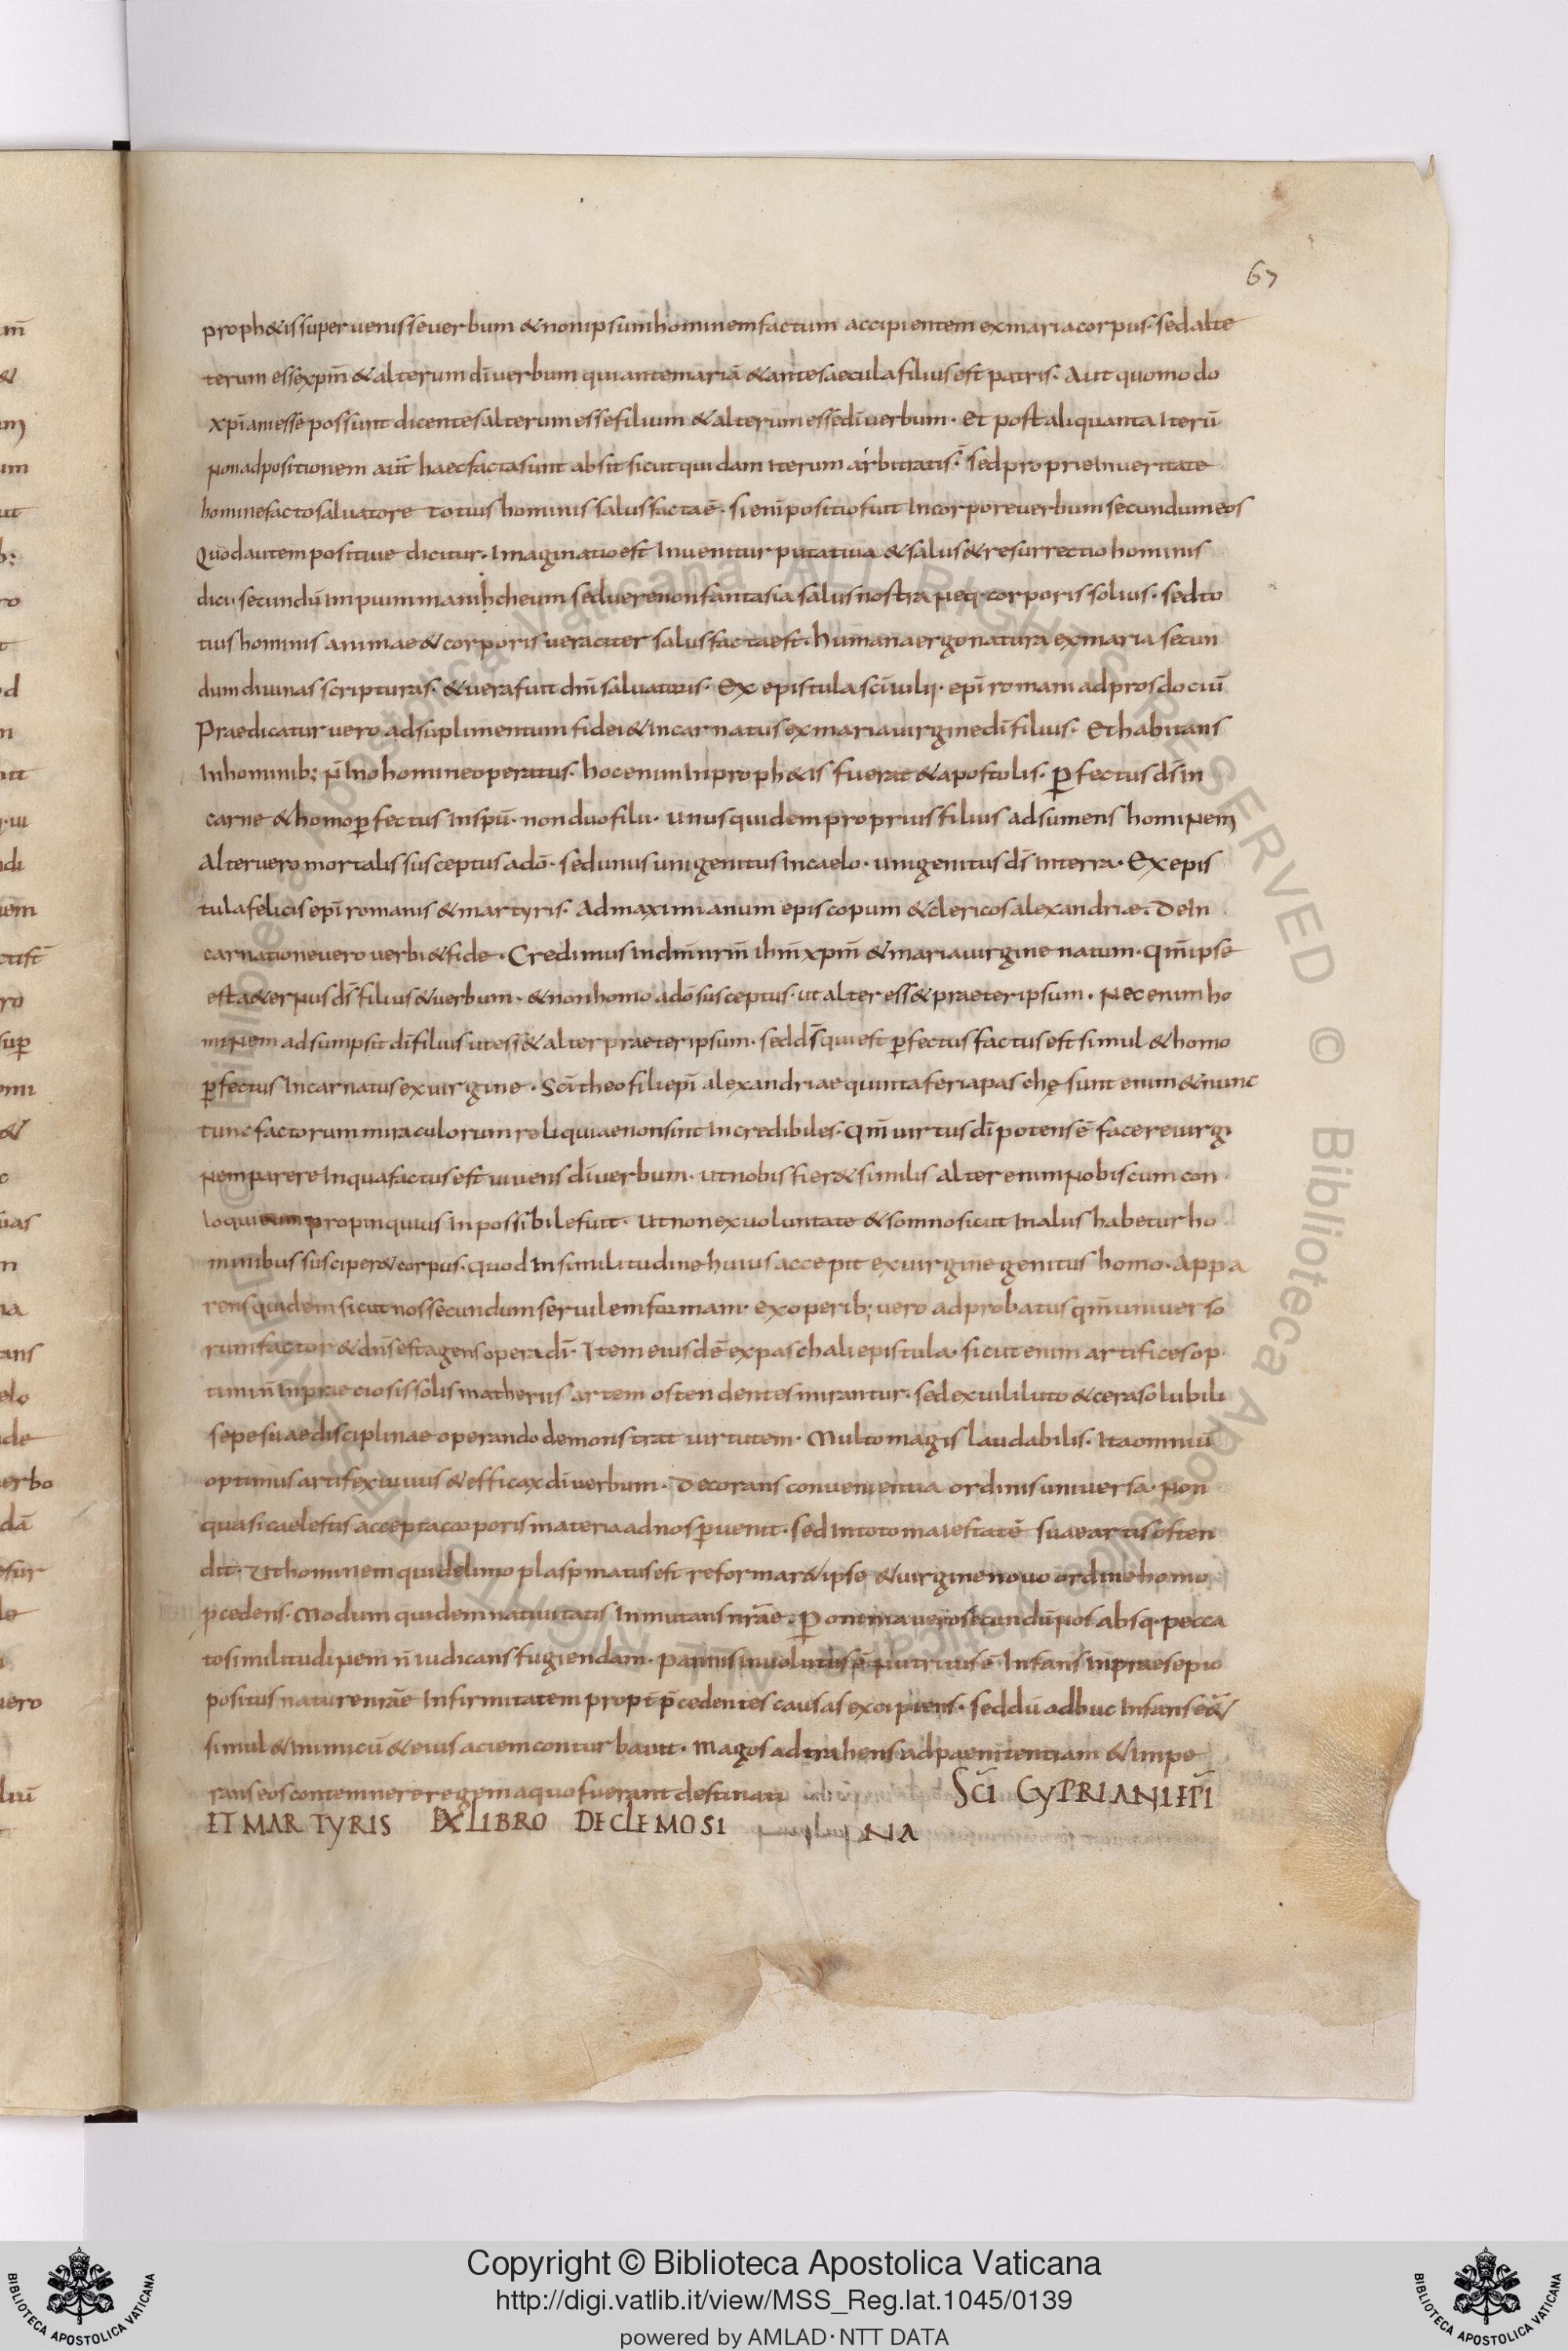 67
proph&is superuenisse uerbum & non ipsum hominem factum accipientem ex maria corpus· sed alte
terum ess& xpm̄ & alterum dī uerbum qui ante mariā & ante saecula filius est patris· Aut quomodo
xpīani esse possunt dicentes alterum esse filium & alterum esse dī uerbum· Et post aliquanta Iterū
Non ad positionem aut̄ haec facta sunt absit sicut quidam Iterum arbitratis· sed proprie In ueritate
homine facto saluatore totius hominis salus facta ē· si enī positio fuit In corpore uerbum secundum eos
Quod autem positiue dicitur· Imaginatio est Inuenitur putatiua & salus & resurrectio hominis
dici· secundū Impium manihcheum sed uere non fantasia salus nostra Neq· corporis solius· sed to
tius hominis animae & corporis ueraciter salus facta est· humana ergo natura ex maria secun
dum diuinas scripturas· & uera fuit dnī saluatoris· Ex epistula scī iulii· epī romani ad prosdociū
Praedicatur uero ad suplimentum fidei & Incarnatus ex maria uirgine dī filius· Et habitans
In hominib; N̄ In homine operatus· hoc enim In proph&is fuerat & apostolis· P̱fectus ds̄ In
carne & homo p̱fectus In spū· non duo filii· unus quidem proprius filius adsumens homiNem
Alter uero mortalis susceptus a dō· sed unus unigenitus In caelo· unigenitus ds̄ In terra· Ex epis
tula felicis epī romanis & martyris· Ad maximianum episcopum & clericos alexandrie· De In
carnatione uero uerbi & fide· Credimus In dnm̄ nrm̄ ihm̄ xpm̄ & maria uirgine natum· Qm̄ ipse
est a&erNus ds̄ filius & uerbum· & non homo a dō susceptus· ut alter ess& praeter ipsum· Nec enim ho
miNem adsumpsit dī filius ut ess& alter praeter ipsum· sed ds̄ qui est p̱fectus factus est simul & homo
p̱fectus Incarnatus ex uirgine· Scī theofili epī alexandriae quinta feria paschę sunt enim & nunc
tunc factorum miraculorum reliquiae non sint Incredibiles· Qm̄ uirtus dī potens ē facere uirgi
Nem parere In qua factus est uiuens dī uerbum· ut nobis fier& similis alter enim Nobiscum con
loqui propinquius Inpossibile fuit· Ut non ex uoluntate & somno sicut In alus habetur ho
minibus susciper& corpus· quod In similitudine huius accepit ex uirgine genitus homo· Appa
rens quidem sicut nos secundum seruilem formam· ex operib; uero adprobatus qm̄ uniuerso
rum factor & dns̄ est agens opera dī· Item eiusdē ex paschali epistula· sicut enim artifices op
timi n̄ In praeciosis solis matheriis artem ostendentes mirantur· sed ex uili luto & cera solubili
sepe suae disciplinae operando demonstrat uirtutem· Multo magis laudabilis· Ita omniū
optimus artifex uiuus & efficax dī uerbum· Decorans conuenientia ordinis uniuersa· Non
quasi caelestis accepta corporis materia ad nos p̱uenit· sed In toto maiestatē suae artis osten
dit· Ut hominem qui de limo plaspmatus est reformar& ipse & uirgine nouo ordine homo
p̄cedens· Modum quidem natiuitatis Inmutans nrāe· P̱ omnia uero secundū Nos absq· pecca
to similitudiNem n̄ iudicans fugiendam· pannis inuolutus ē Nutritus ē Infans In praesepio
positus nature nrāe Infirmitatem propt̄ p̄cedentes causas excipiens· sed dū adhuc Infans e&
simul & inimicū & eius aciem conturbauit· Magos adtrahens ad paenitentiam & Impe
rans eos contemnere regem a quo fuerant destinati SCĪ CYPRIANI EPĪ
ET MARTYRIS EX LIBRO DE CLEMOSI
NA
© Biblioteca Apostolica Vaticana ALL RIGHTS RESERVED
Copyright © Biblioteca Apostolica Vaticana
http://digi.vatlib.it/view/MSS_Reg.lat.1045/0139
powered by AMLAD·NTT DATA
BIBLIOTECA APOSTOLICA VATICANA
BIBLIOTECA APOSTOLICA VATICANA